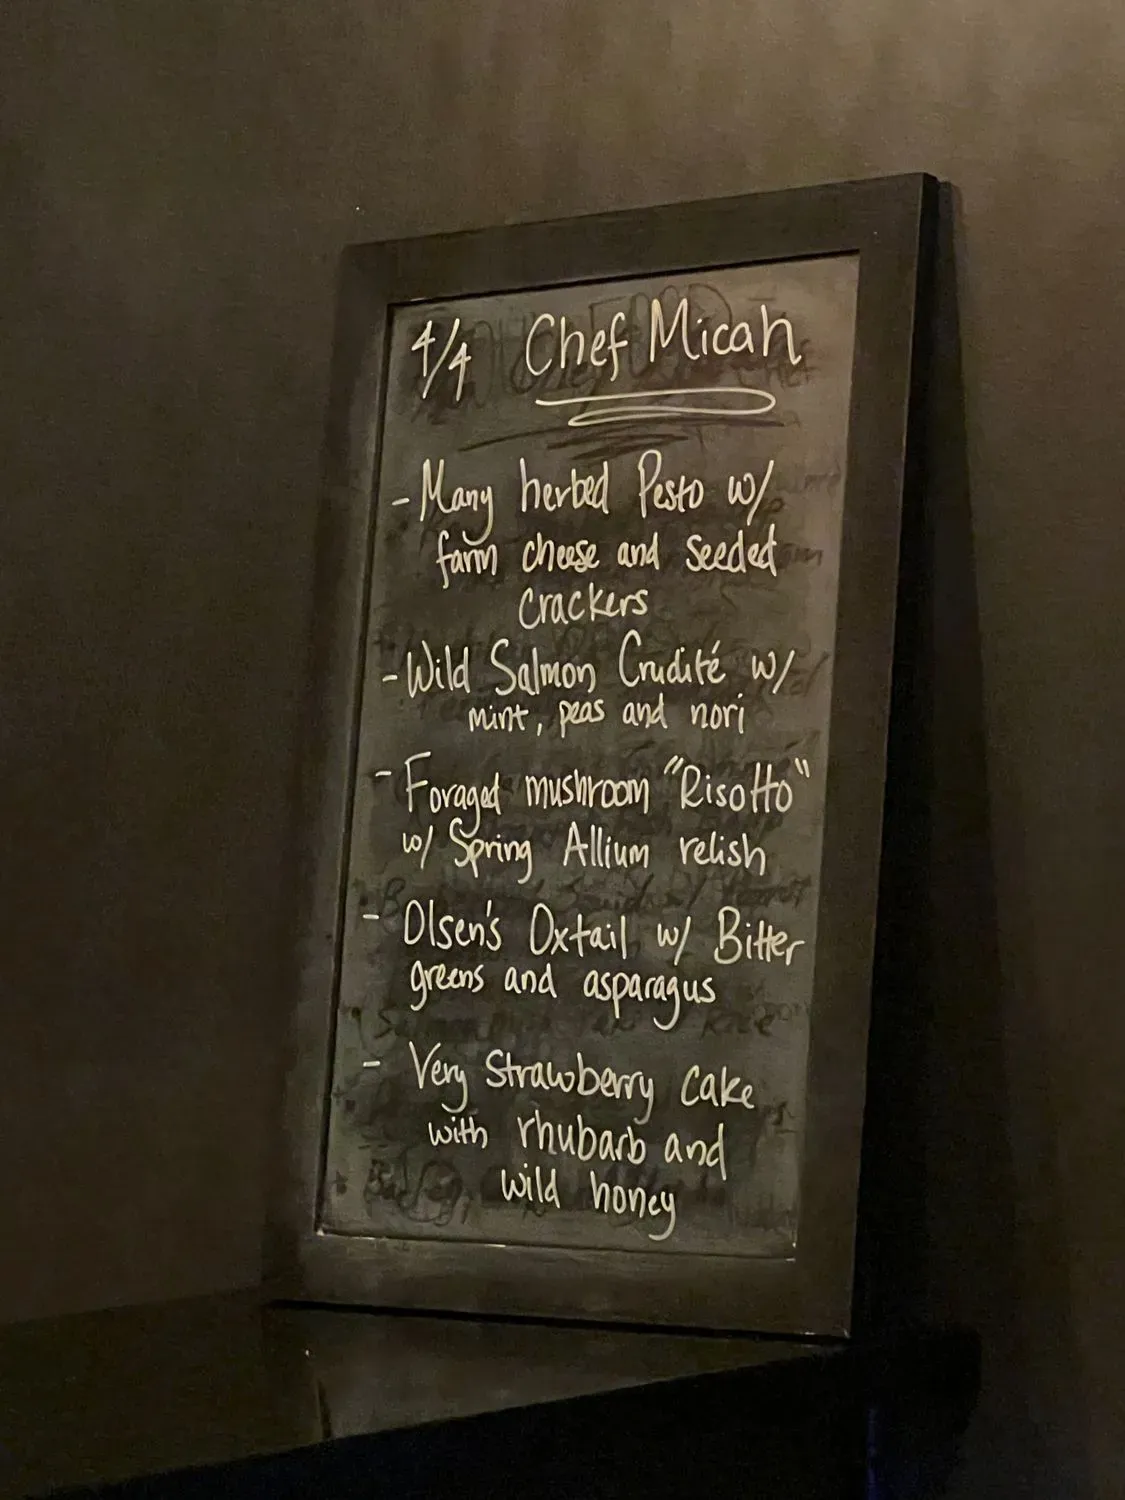 4/4 Chef Micah
- Many herbed Pesto w/
farm cheese and seeded
crackers
- Wild Salmon Crudité w/
mint, peas and nori
- Foraged mushroom "Risotto"
w/ Spring Allium relish
- Olsen's Oxtail w/ Bitter
greens and asparagus
- Very Strawberry Cake
with rhubarb and
wild honey